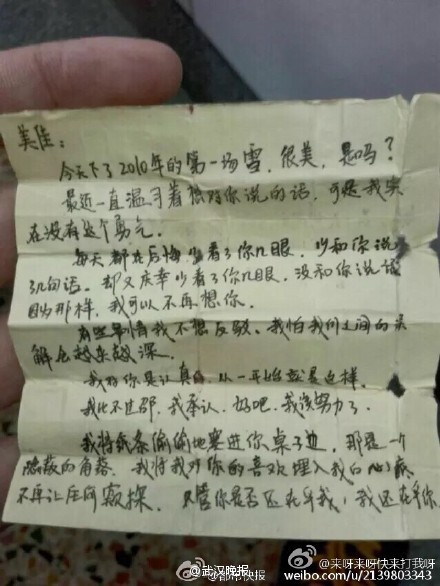 美佳：
今天下了2010年的第一场雪，很美，是吗？
最近一直温习着想对你说的话，可是我实
在没有这个勇气。
每天都在后悔少看了你几眼，少和你说
了几句话。却又庆幸少看了你几眼，没和你说话
因为那样，我可以不再想你。
有些事情我不想反驳，我怕我们之间的误
解会越来越深。
我对你是认真的，从一开始就是这样。
我比不过邵，我承认，好吧，我该努力了。
我将纸条偷偷地塞进你桌子边，那是一个
隐蔽的角落。我将我对你的喜欢埋入我的心底
不再让任何窥探。不管你是否还在乎我，我还在乎你。
武汉晚报
都市快报
@来呀来呀快来打我呀
weibo.com/u/2139803343